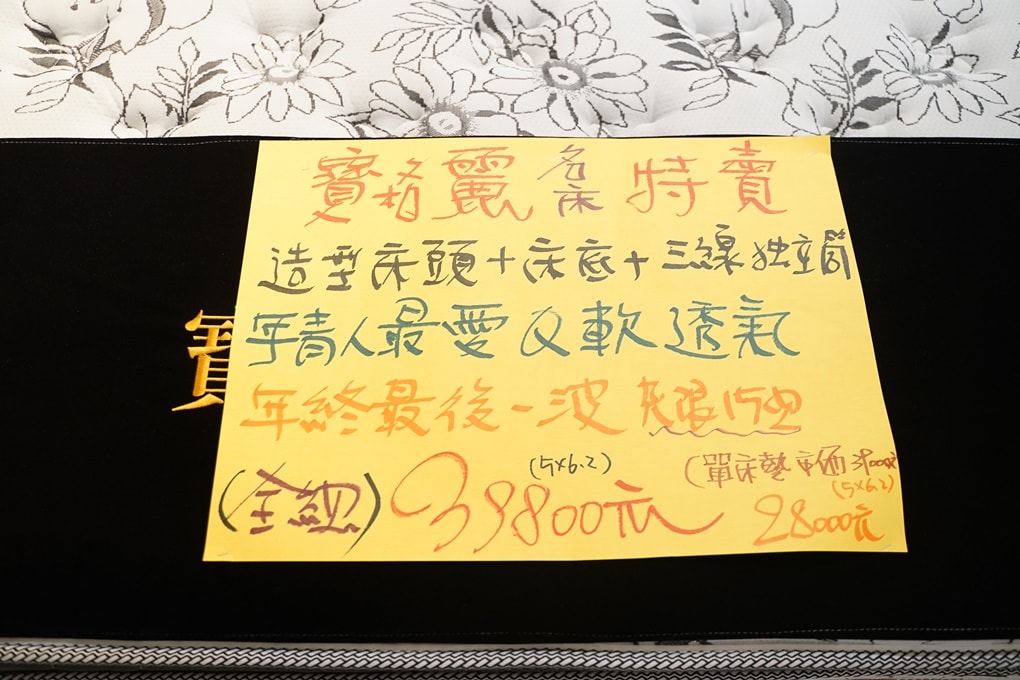 寶格麗名床特賣
造型床頭+床底+三線独立筒
年青人最愛Q軟透氣
年終最後一波 只限15組
(全組) 39800元 (5x6.2)
(單床墊 市価
(5x6.2)
28000元
寶